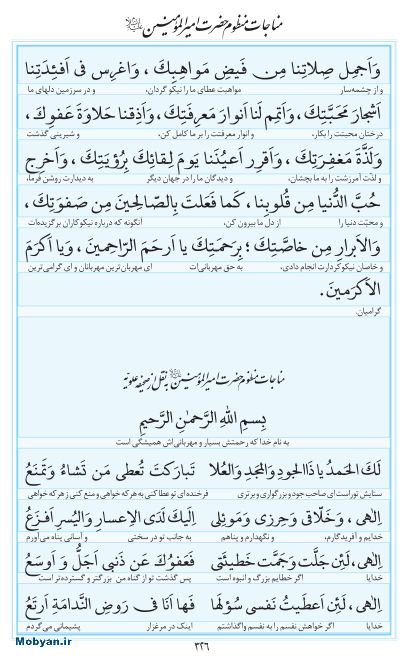 مناجات منظوم حضرت امیرالمؤمنین علیه‌السلام
وَاَجمِل صِلاتَنا مِن فَیضِ مَواهِبِکَ ، وَاغرِس فی اَفئِدَتِنا
و از چشمه‌سار مواهبت عطای ما را نیکو گردان، و در سرزمین دلهای ما
اَشجارَ مَحَبَّتِکَ ، وَاَتمِم لَنا اَنوارَ مَعرِفَتِکَ ، وَاَذِقنا حَلاوَةَ عَفوِکَ ،
درختان محبتت را بکار، و انوار معرفتت را بر ما کامل کن، و شیرینی گذشت
وَلَذَّةَ مَغفِرَتِکَ ، وَاَقرِر اَعیُنَنا یَومَ لِقائِکَ بِرُؤیَتِکَ ، وَاَخرِج
و لذت آمرزشت را به ما بچشان، و دیدگان ما را در جهان دیگر به دیدارت روشن فرما،
حُبَّ الدُّنیا مِن قُلوبِنا ، کَما فَعَلتَ بِالصّالِحینَ مِن صَفوَتِکَ ،
و محبّت دنیا را از دل ما بیرون کن، آنگونه که درباره نیکوکاران برگزیده‌ات
وَالاَبرارِ مِن خاصَّتِکَ ؛ بِرَحمَتِکَ یا اَرحَمَ الرّاحِمینَ ، وَیا اَکرَمَ
و خاصان نیکوکردارت انجام دادی، به حق مهربانی‌ات ای مهربان‌ترین مهربانان و ای گرامی‌ترین
الاَکرَمینَ .
گرامیان.
مناجات منظوم حضرت امیرالمؤمنین علیه‌السلام به نقل از صحیفه علویّه
بِسمِ اللهِ الرَّحمٰنِ الرَّحیمِ
به نام خدا که رحمتش بسیار و مهربانی‌اش همیشگی است
لَکَ الحَمدُ یا ذَا الجودِ وَالمَجدِ وَالعُلا تَبارَکتَ تُعطی مَن تَشاءُ وَتَمنَعُ
ستایش تو راست ای صاحب جود و بزرگواری و برتری فرخنده‌ای تو عطا کنی به هر که خواهی و منع کنی ز هر که خواهی
اِلهی ، وَخَلّاقی وَحِرزی وَمَوئِلی اِلَیکَ لَدَی الاِعسارِ وَالیُسرِ اَفزَعُ
خدایم و آفریدگارم، و نگهدارم و پناهم به جانب تو در سختی و آسانی پناه می‌آورم
اِلهی ، لَئِن جَلَّت وَجَمَّت خَطیئَتی فَعَفوُکَ عَن ذَنبی اَجَلُّ وَ اَوسَعُ
خدایا اگر خطایم بزرگ و انبوه است پس گذشت تو از گناه من بزرگتر و گسترده‌تر است
اِلهی ، لَئِن اَعطَیتُ نَفسی سُؤلَها فَها اَنَا فی رَوضِ النَّدامَةِ اَرتَعُ
خدایا اگر خواهش نفسم را به نفسم واگذاشتم اینک در مرغزار پشیمانی می‌گردم
۳۲۶
Mobyan.ir